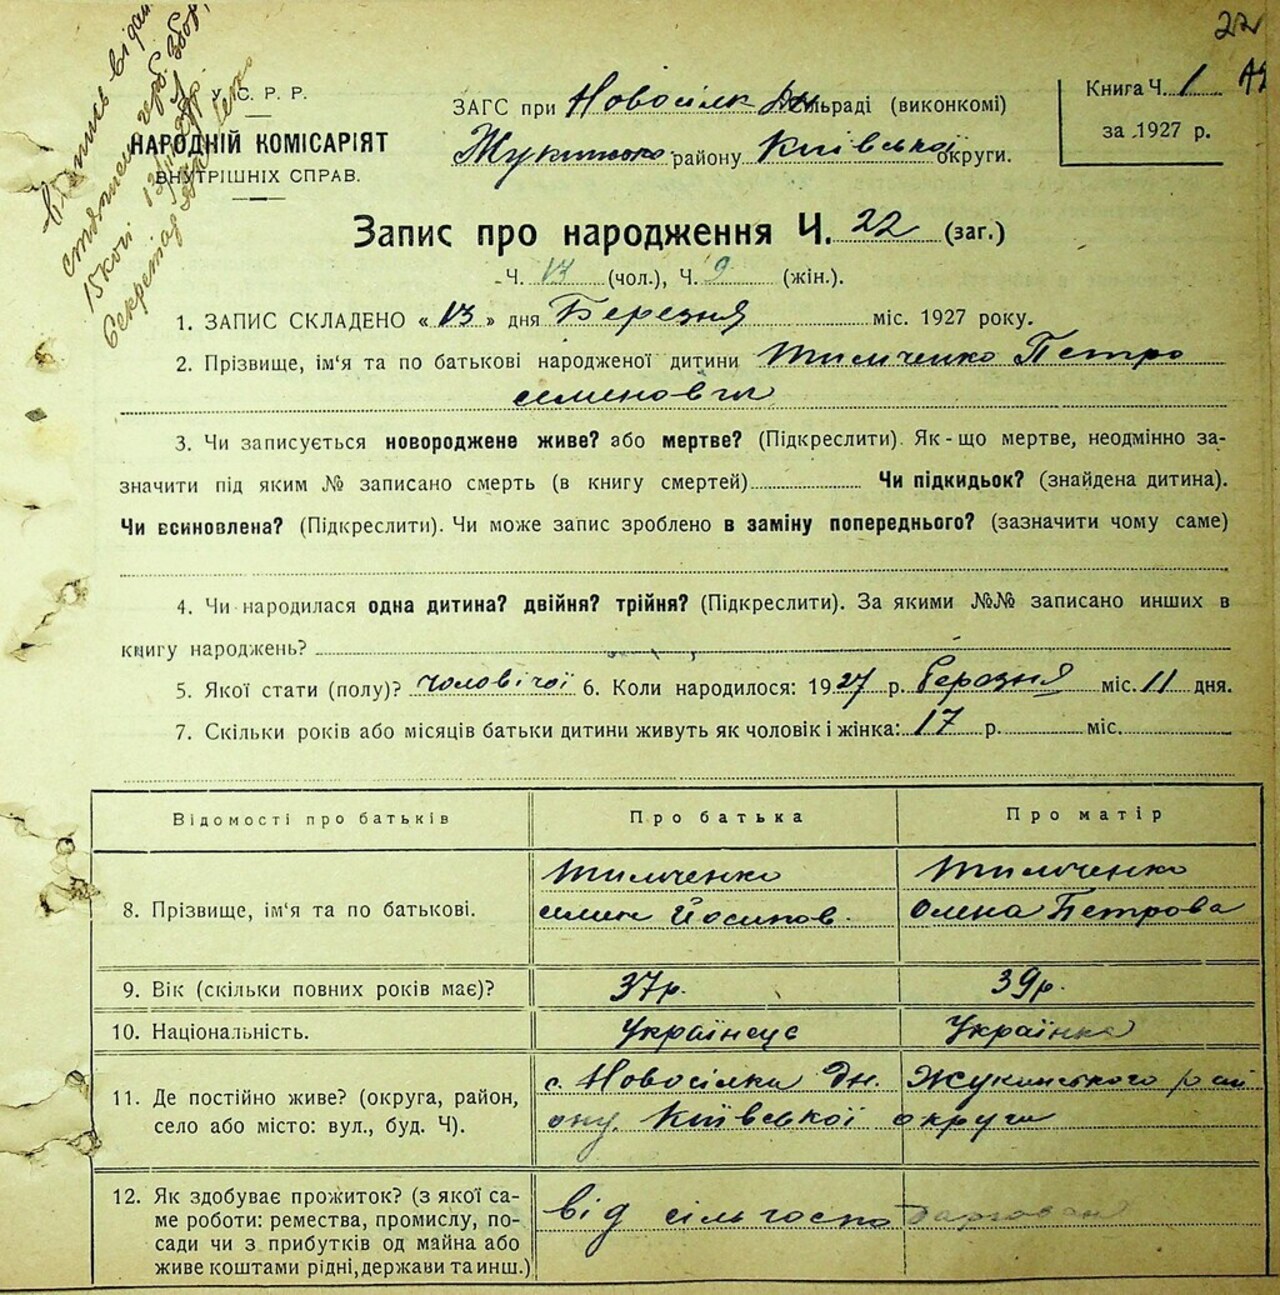 22
У. С. Р. Р.
НАРОДНІЙ КОМІСАРІЯТ
ВНУТРІШНІХ СПРАВ.
ЗАГС при Новосілк Дн сільраді (виконкомі)
Жукинсько району Київської округи.
Книга Ч. 1
за 1927 р.
Секретар
15 коп
Запис про народження Ч. 22 (заг.)
Ч. 13 (чол.), Ч. 9 (жін.).
1. ЗАПИС СКЛАДЕНО « 13 » дня Березня міс. 1927 року.
2. Прізвище, ім'я та по батькові народженої дитини Тимченко Петро
семенович
3. Чи записується новороджене живе? або мертве? (Підкреслити). Як-що мертве, неодмінно за-
значити під яким № записано смерть (в книгу смертей) Чи підкидьок? (знайдена дитина).
Чи всиновлена? (Підкреслити). Чи може запис зроблено в заміну попереднього? (зазначити чому саме)
4. Чи народилася одна дитина? двійня? трійня? (Підкреслити). За якими №№ записано инших в
книгу народжень?
5. Якої стати (полу)? чоловічої 6. Коли народилося: 1927 р. березня міс. 11 дня.
7. Скільки років або місяців батьки дитини живуть як чоловік і жінка: 17 р. міс.
Відомості про батьків Про батька Про матір
8. Прізвище, ім'я та по батькові. Тимченко Тимченко
семен Йосипов. Олена Петрова
9. Вік (скільки повних років має)? 37р. 39р.
10. Національність. Українець Українка
11. Де постійно живе? (округа, район,
село або місто: вул., буд. Ч).
с. Новосілки Дн. Жукинського рай
ону. Київської округи
12. Як здобуває прожиток? (з якої са-
ме роботи: ремества, промислу, по-
сади чи з прибутків од майна або
живе коштами рідні, держави та инш.)
від сільгоспо